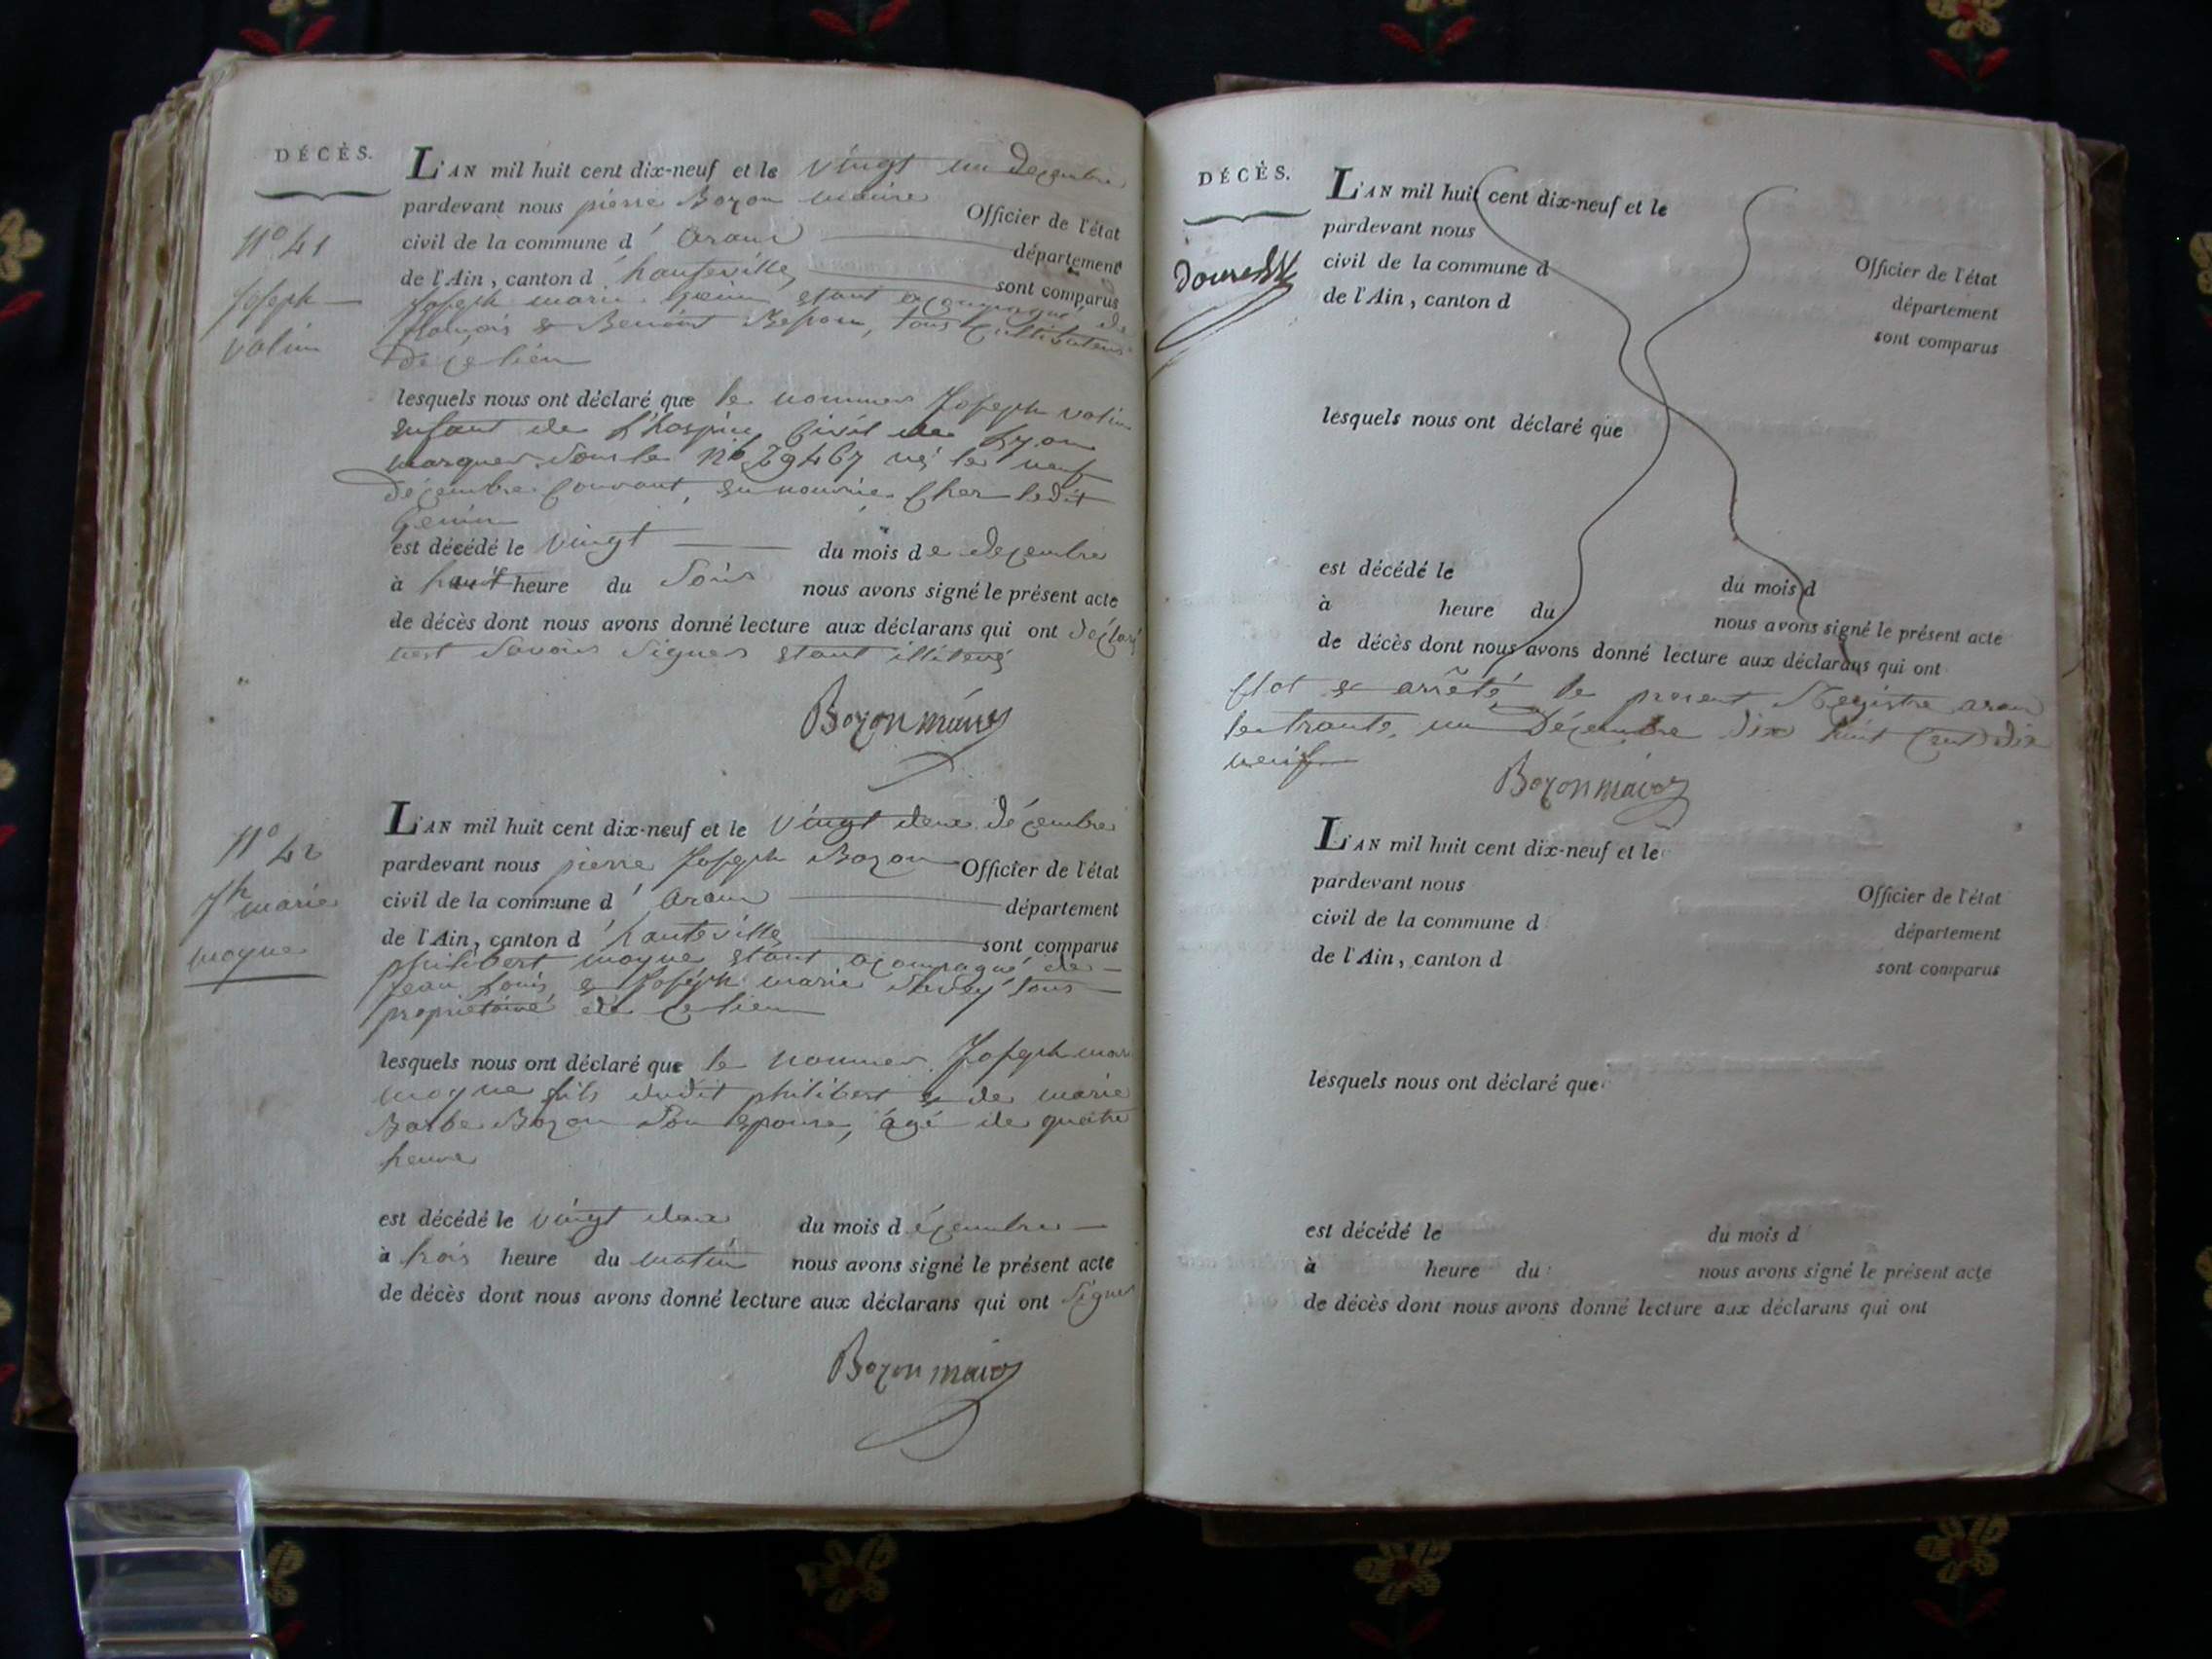 DÉCÈS.
L'AN mil huit cent dix-neuf et le vingt un decembre
pardevant nous pierre Bozon maire Officier de l'état
civil de la commune d'aranc département
de l'Ain, canton d'hauteville sont comparus
joseph marie genin etant acompagné de
françois & Benoist tous cultivateurs
de ce lieu
N° 41
Joseph
Valin
lesquels nous ont déclaré que le nommer Joseph valin
enfant de l'hospice Civil de Lyon
marquer sous le N° 29467 né le neuf
decembre Courant, en nourrice Cher ledit
Genin
est décédé le vingt du mois de decembre
à huit heure du Soir nous avons signé le présent acte
de décès dont nous avons donné lecture aux déclarans qui ont déclaré
Savoir Signer etant
Bozon maire
L'AN mil huit cent dix-neuf et le vingt deux décembre
pardevant nous pierre Joseph Bozon Officier de l'état
civil de la commune d'aranc département
de l'Ain, canton d'hauteville sont comparus
philibert moyne etant acompagné de
jean Louis & Joseph marie Savey tous
proprietaire de ce lieu
N° 42
Jh marie
moyne
lesquels nous ont déclaré que le nommer Joseph mari
moyne fils dudit philibert & de marie
Barbe Bozon Son epouse, âgé de quatre
heure
est décédé le vingt deux du mois décembre
à trois heure du matin nous avons signé le présent acte
de décès dont nous avons donné lecture aux déclarans qui ont Signer
Bozon maire
DÉCÈS.
L'AN mil huit cent dix-neuf et le
pardevant nous Officier de l'état
civil de la commune d département
de l'Ain, canton d sont comparus
lesquels nous ont déclaré que
est décédé le du mois d
à heure du nous avons signé le présent acte
de décès dont nous avons donné lecture aux déclarans qui ont
Clot & arrêté le present Registre aranc
le trante un Décembre dix huit Cent dix
neuf
Bozon maire
L'AN mil huit cent dix-neuf et le
pardevant nous Officier de l'état
civil de la commune d département
de l'Ain, canton d sont comparus
lesquels nous ont déclaré que
est décédé le du mois d
à heure du nous avons signé le présent acte
de décès dont nous avons donné lecture aux déclarans qui ont